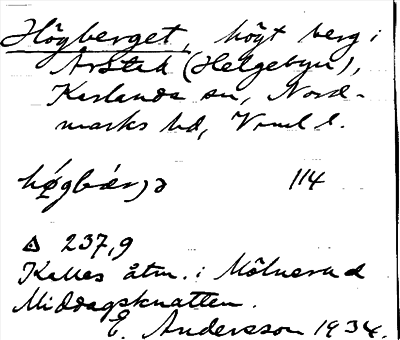 Högberget, högt berg i
Årstek (Helgebyn),
Karlanda sn, Nord-
marks hd, Vrml l.
hǿgbær̨ə 114
237,9
Kalles åtm. i Mölnerud
Middagsknatten.
E. Andersson 1934.